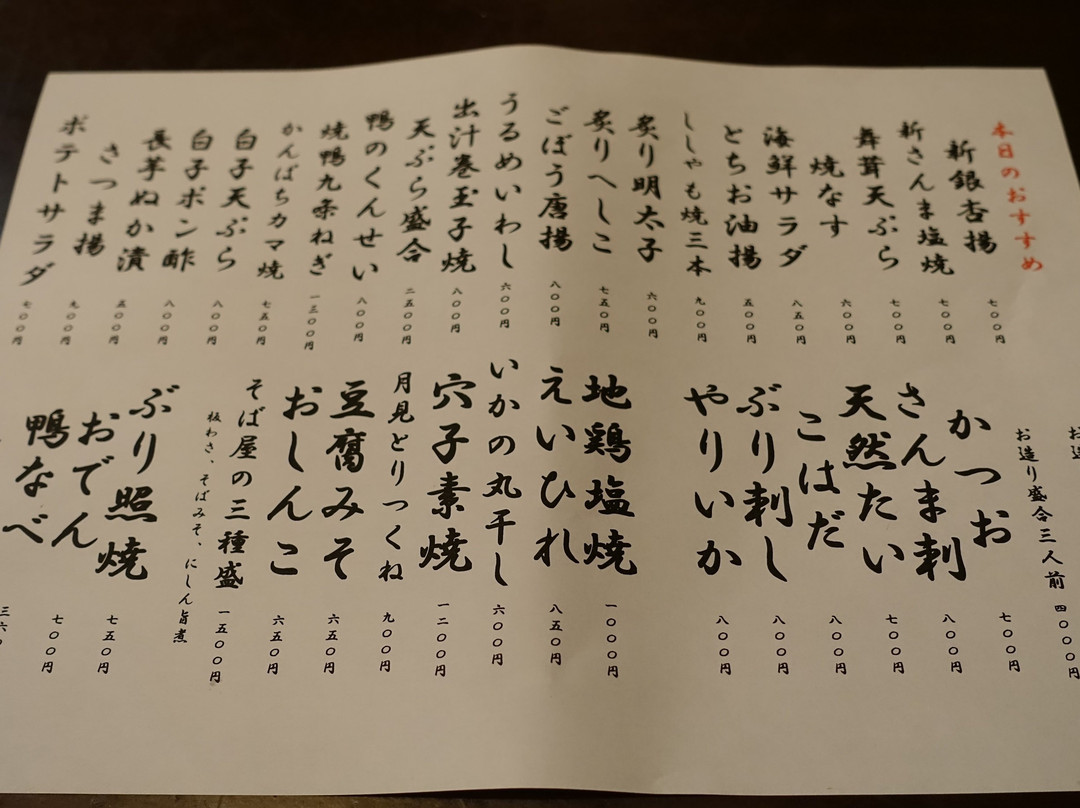 本日のおすすめ
新銀杏揚 七〇〇円
新さんま塩焼 七〇〇円
舞茸天ぷら 七〇〇円
焼なす 六〇〇円
海鮮サラダ 八五〇円
とちお油揚 五〇〇円
ししゃも焼三本 九〇〇円
炙り明太子 六〇〇円
炙りへしこ 七五〇円
ごぼう唐揚 八〇〇円
うるめいわし 六〇〇円
出汁巻玉子焼 八〇〇円
天ぷら盛合 二五〇〇円
鴨のくんせい 八〇〇円
焼鴨九条ねぎ 一三〇〇円
かんぱちカマ焼 七五〇円
白子天ぷら 八〇〇円
白子ポン酢 八〇〇円
長芋ぬか漬 五〇〇円
さつま揚 九〇〇円
ポテトサラダ 七〇〇円
お造
お造り盛合三人前 四〇〇〇円
かつお 七〇〇円
さんま刺 八〇〇円
天然たい 七〇〇円
こはだ 八〇〇円
ぶり刺し 八〇〇円
やりいか 八〇〇円
地鶏塩焼 一〇〇〇円
えいひれ 八五〇円
いかの丸干し 六〇〇円
穴子素焼 一二〇〇円
月見とりつくね 九〇〇円
豆腐みそ 六五〇円
おしんこ 六五〇円
そば屋の三種盛 一五〇〇円
板わさ、そばみそ、にしん旨煮
ぶり照焼 七五〇円
おでん 七〇〇円
鴨なべ 三六〇